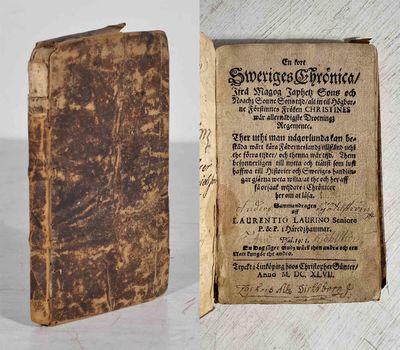 En kort
Sweriges Chrönica/
Ifrå Magog Japhetz Sons och
Noachs Sonne Sons tijd/ alt in til Högbor-
ne Förstinnes Fröken CHRISTINES
wår allernådigste Drotnings
Regemente.
Ther uthi man någorlunda kan be-
skåda wårt kära Fäderneslands tilstånd uthi
the förra tijder/ och thenna wår tijd. Them
besynnerligen till nytta och tiänst som lust
haffwa till Historier och Sweriges handlin-
gar giärna weta wilia/ at the och her aff
få orsaak wijdare i Chrönicor
her om at läsa.
Sammandragen
aff
LAURENTIO LAURINO Seniore
P. & P. i Häredzhammar.
Psal. 19: 2.
En Dag säger Gudz wärck then andra och een
Natt kungör the andro.
Tryckt i Linköping hoos Christopher Günter/
Anno M. DC. XLVII.